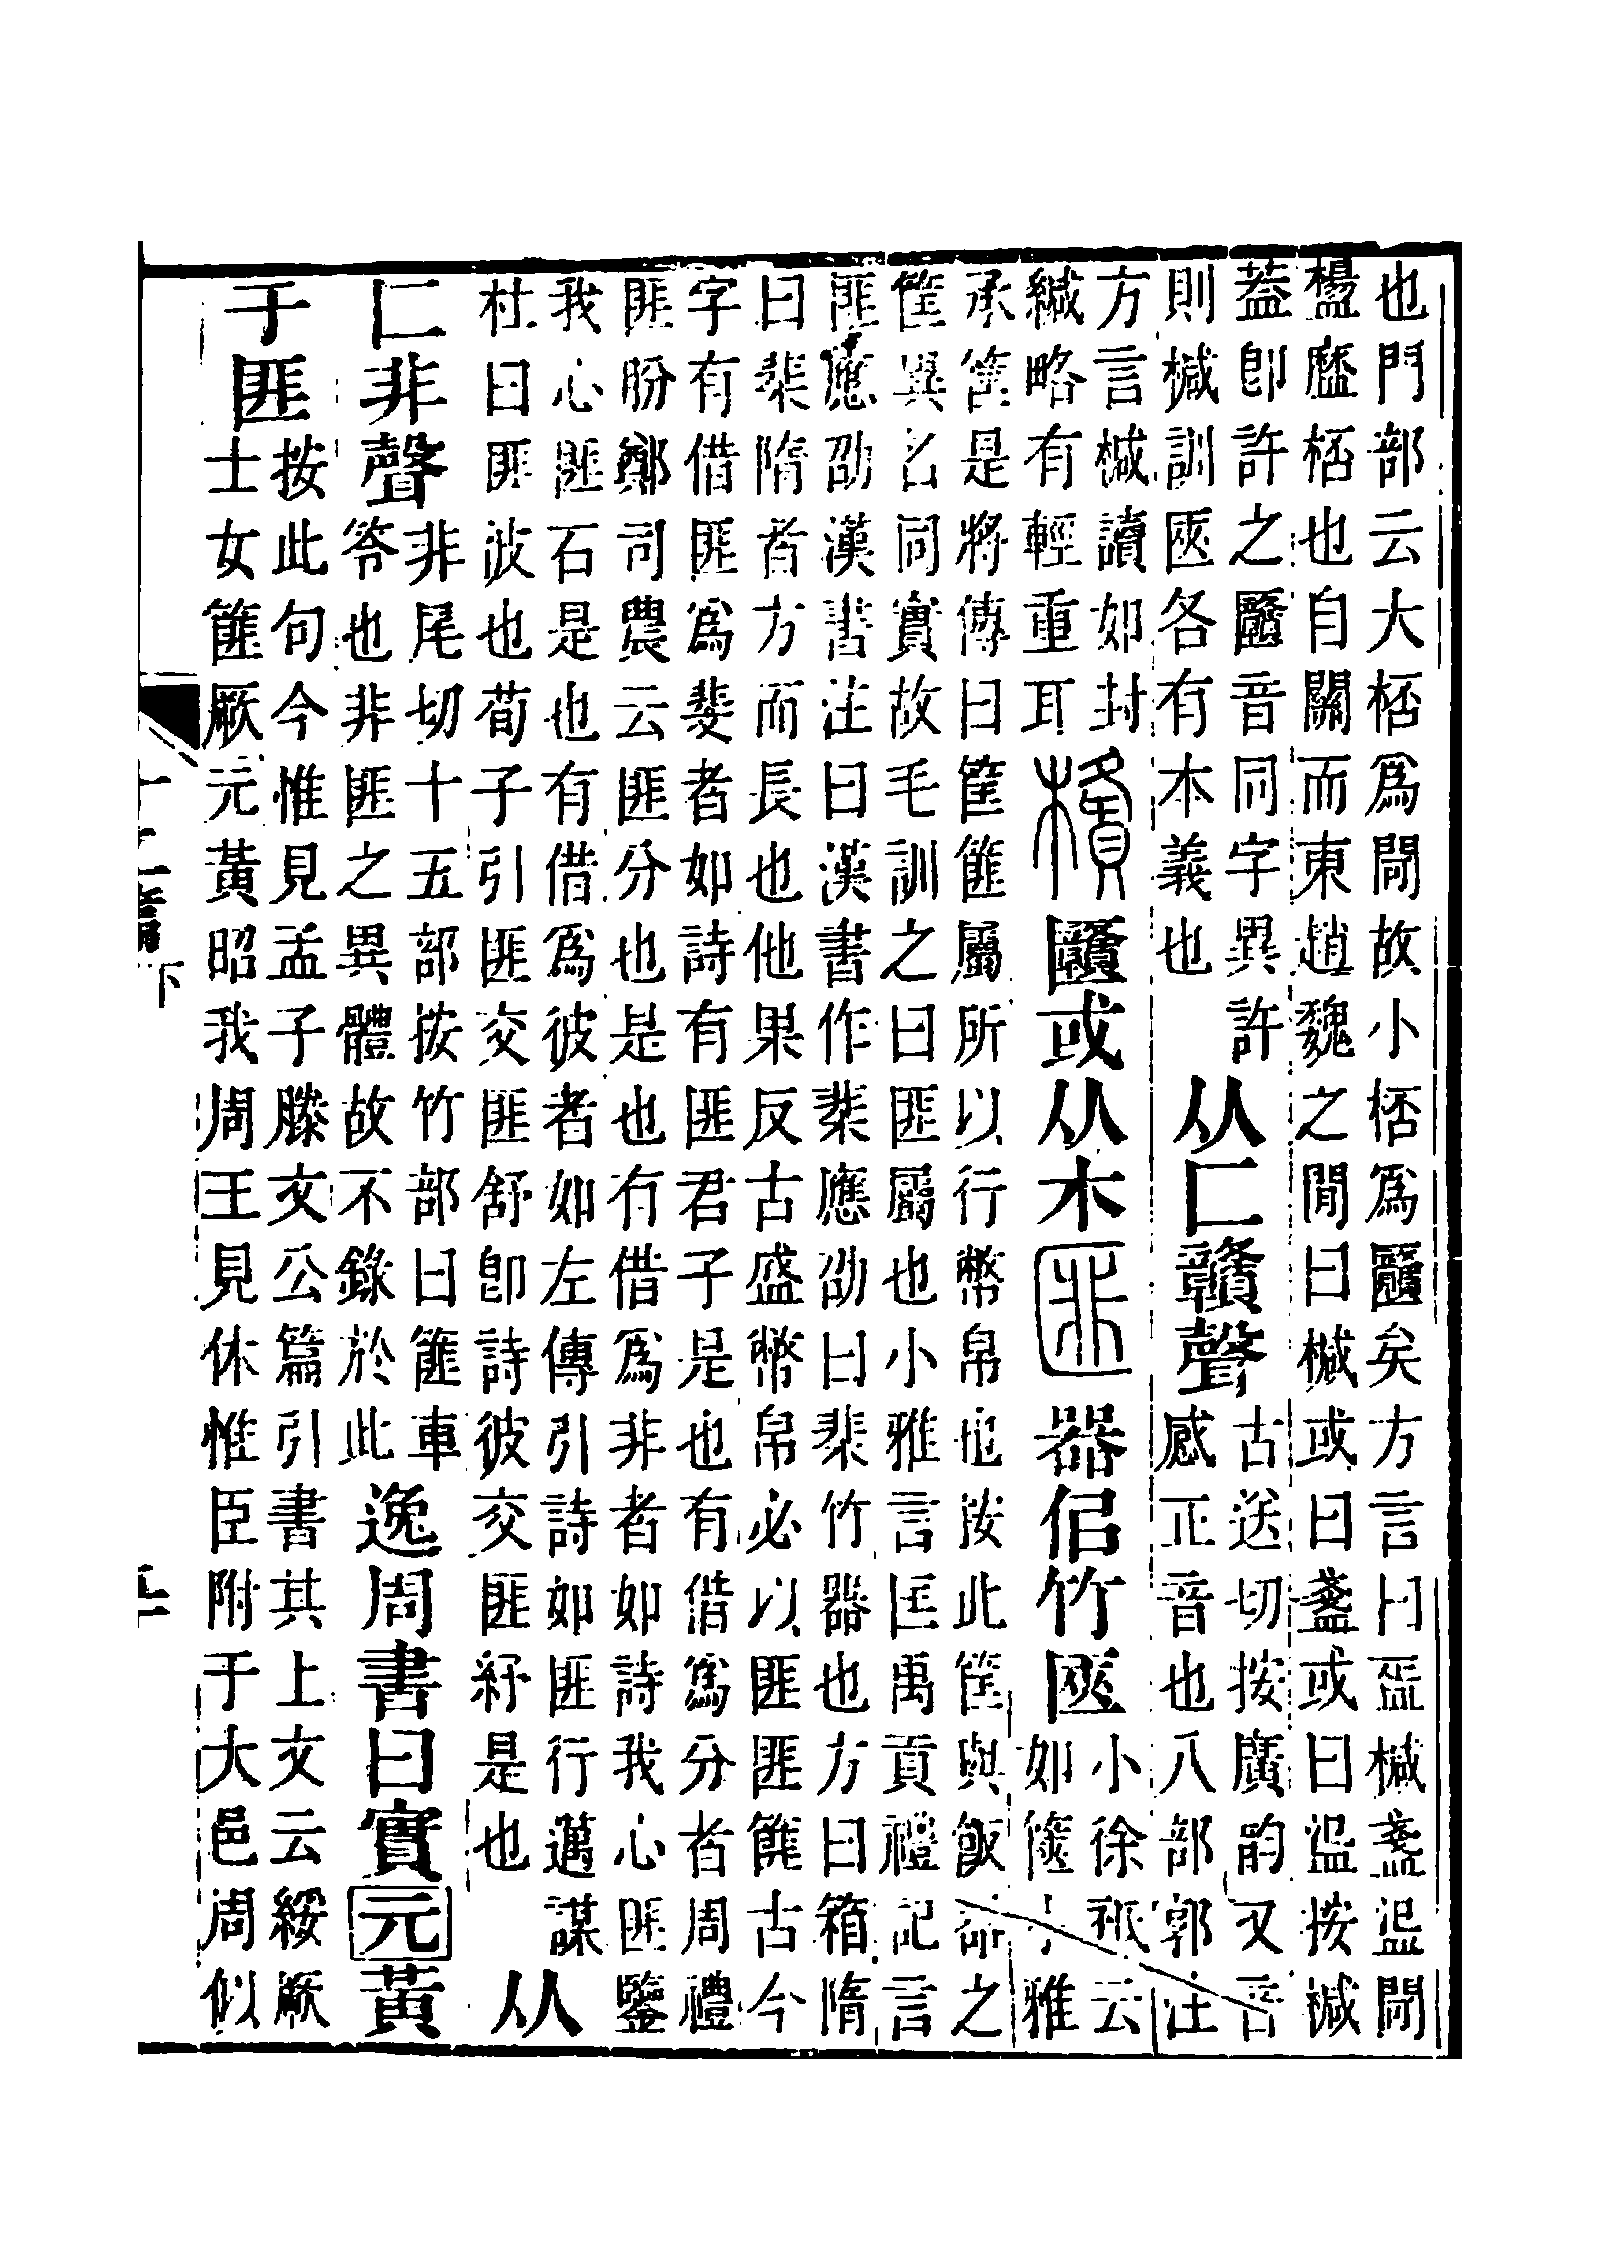 也門部云大桮爲閜故小桮爲𠥫矣方言曰盃椷盞𥁓閜
㯼㽉桮也自關而東趙魏之閒曰椷或曰盞或曰𥁓按椷
葢卽許之𠥫音同字異許
則椷訓匧各有本義也
从匚贛聲
古送切按廣韵又音
感正音也八部郭注
方言椷讀如封
緘略有輕重耳
𠥫或从木
匪
器佀竹匧
小徐祇云
如篋小雅
承筐是將傳曰筐篚屬所以行幣帛也按此筐與飯器之
筐異名同實故毛訓之曰匪屬也小雅言匡禹貢禮記言
匪應劭漢書注曰漢書作棐應劭曰棐竹器也方曰箱隋
曰棐隋者方而長也他果反古盛幣帛必以匪匪篚古今
字有借匪爲斐者如詩有匪君子是也有借爲分者周禮
匪肦鄭司農云匪分也是也有借爲非者如詩我心匪鑒
我心匪石是也有借爲彼者如左傳引詩如匪行邁謀
杜曰匪彼也荀子引匪交匪舒卽詩彼交匪紓是也
从
匚非聲
非尾切十五部按竹部曰篚車
笭也非匪之異體故不錄於此
逸周書曰實元黃
于匪
按此句今惟見孟子滕文公篇引書其上文云綏厥
士女篚厥元黃昭我周王見休惟臣附于大邑周似
十二篇下